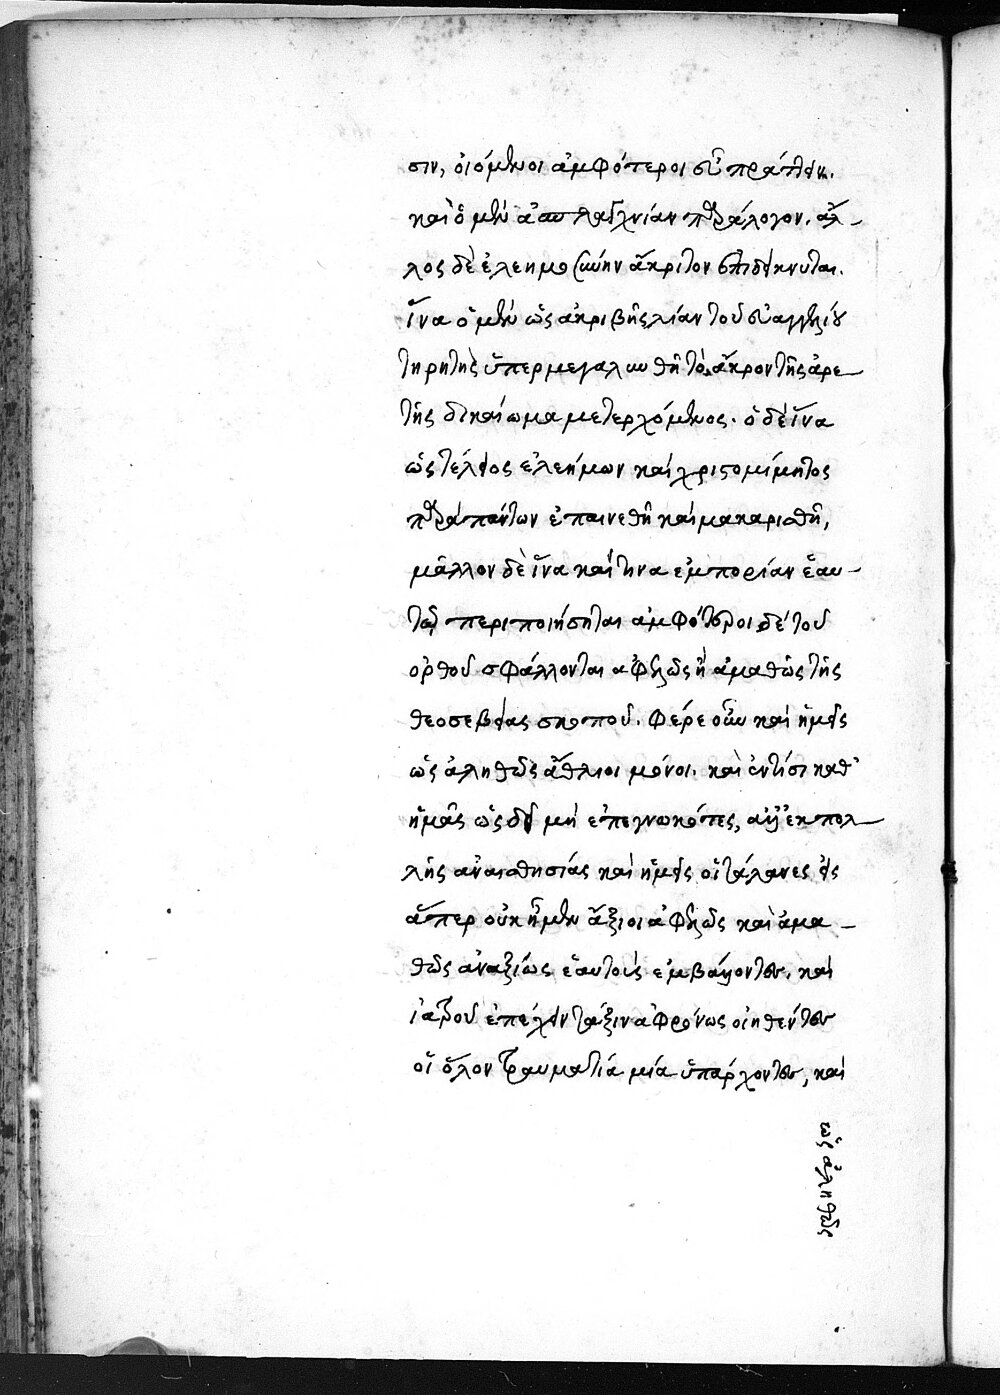 σιν, οἰόμενοι ἀμφότεροι εὖ πράττειν.
καὶ ὁ μὲν ἀσπλαγχνίαν παράλογον. ἄλ-
λος δὲ ἐλεημοσύνην ἄκριτον ἐπιδείκνυται.
ἵνα ὁ μὲν ὡς ἀκριβὴς λίαν τοῦ εὐαγγελίου
τηρητὴς ὑπερμεγαλυνθῆ τὸ ἄκρον τῆς ἀρε-
τῆς δικαίωμα μετερχόμενος. ὁ δὲ ἵνα
ὡς τέλειος ἐλεήμων καὶ χριστομίμητος
παρὰ πάντων ἐπαινεθῆ καὶ μακαρισθῆ,
μᾶλλον δὲ ἵνα καί τινα ἐμπορίαν ἑαυ-
τῶ περιποιήσηται ἀμφότεροι δὲ τοῦ
ὀρθοῦ σφάλλονται ἀφελῶς ἢ ἀμαθῶς τῆς
θεοσεβείας σκοποῦ. Φέρε οὖν καὶ ἡμεῖς
ὡς ἀληθῶς ἄθλιοι μόνοι. καὶ καθ'
ἡμᾶς ὡς δεῖ μὴ ἐπεγνωκότες, ἀλλ' ἐκ πολ-
λῆς ἀναισθησίας καὶ ἡμεῖς οἱ τάλανες εἰς
ἅπερ οὐκ ἦμεν ἄξιοι ἀφελῶς καὶ ἀμα-
θῶς ἀναξίως ἑαυτοὺς ἐμβάλοντες. καὶ
ἰατροῦ ἐπέχειν τάξιν ἀφρόνως οἰηθέντες
οἱ ὅλον τραυματία μία ὑπάρχοντες, καὶ
ὡς ἀληθῶς